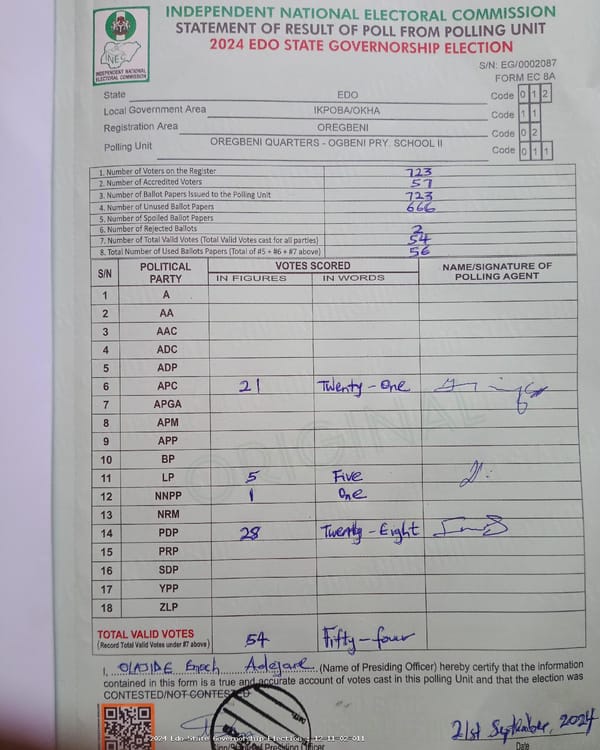 INDEPENDENT NATIONAL ELECTORAL COMMISSION
STATEMENT OF RESULT OF POLL FROM POLLING UNIT
2024 EDO STATE GOVERNORSHIP ELECTION
INEC
INDEPENDENT NATIONAL
ELECTORAL COMMISSION
S/N: EG/0002087
FORM EC 8A
State EDO Code 0 1 2
Local Government Area IKPOBA/OKHA Code 1 1
Registration Area OREGBENI Code 0 2
Polling Unit OREGBENI QUARTERS - OGBENI PRY. SCHOOL II Code 0 1 1
1. Number of Voters on the Register 723
2. Number of Accredited Voters 57
3. Number of Ballot Papers Issued to the Polling Unit 723
4. Number of Unused Ballot Papers 666
5. Number of Spoiled Ballot Papers
6. Number of Rejected Ballots 2
7. Number of Total Valid Votes (Total Valid Votes cast for all parties) 54
8. Total Number of Used Ballots Papers (Total of #5 + #6 + #7 above) 56
S/N POLITICAL PARTY VOTES SCORED NAME/SIGNATURE OF POLLING AGENT
IN FIGURES IN WORDS
1 A
2 AA
3 AAC
4 ADC
5 ADP
6 APC 21 Twenty-One
7 APGA
8 APM
9 APP
10 BP
11 LP 5 Five
12 NNPP 1 One
13 NRM
14 PDP 28 Twenty-Eight
15 PRP
16 SDP
17 YPP
18 ZLP
ORIGINAL
TOTAL VALID VOTES 54 Fifty-four
(Record Total Valid Votes under #7 above)
I, OLAJIDE Enoch Adejare (Name of Presiding Officer) hereby certify that the information
contained in this form is a true and accurate account of votes cast in this polling Unit and that the election was
CONTESTED/NOT CONTESTED
21st September, 2024
2024 Edo State Governorship Election - 12-11-02-011
Sign/ of Presiding Officer
Date